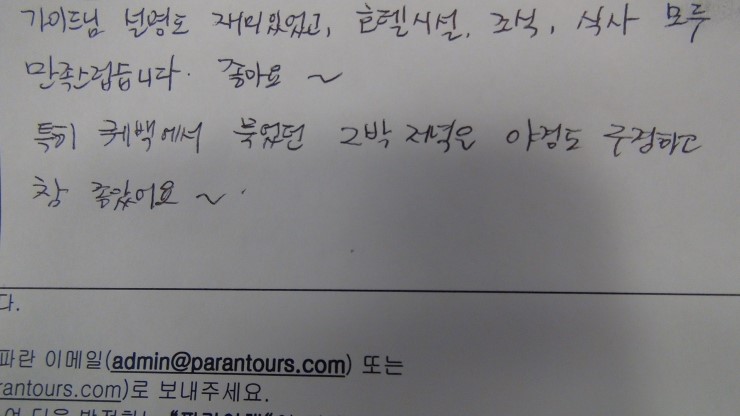 가이드님 설명도 재미있었고, 호텔시설, 조석, 식사 모두
만족스럽습니다. 좋아요 ~
특히 퀘백에서 묵었던 2박 저녁은 야경도 구경하고
참 좋았어요 ~.
다.
파란 이메일(admin@parantours.com) 또는
rantours.com)로 보내주세요.